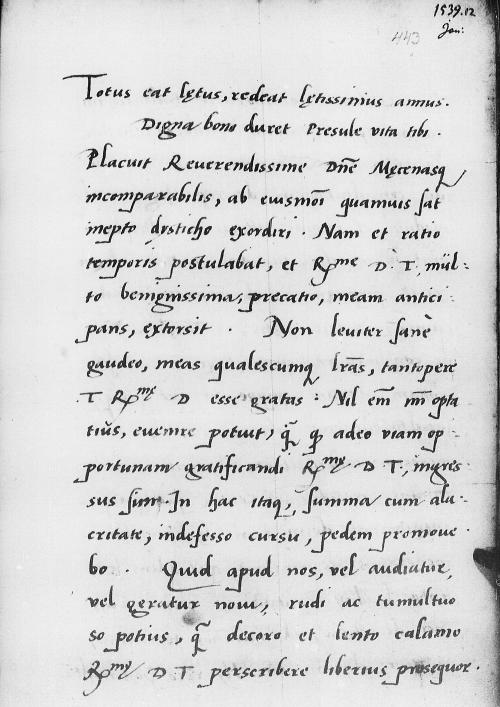 1539.12
Jan:
443
Totus eat lętus, redeat lętissimus annus.
Digna bono duret Presule vita tibi.
Placuit Reverendissime Dñe Męcenasq
incomparabilis, ab eiusmoi quamuis sat
inepto disticho exordiri. Nam et ratio
temporis postulabat, et Rme D. T. mul:
to benignissima, precatio, meam antici
pans, extorsit. Non leuiter sanè
gaudeo, meas qualescumq lras, tantopere
T Rme D esse gratas: Nil em mi opta
tius, euenire potuit, q q adeo viam op
portunam gratificandi Rme D T., ingres
sus sim. In hac itaq, summa cum ala:
critate, indefesso cursu, pedem promoue
bo. Quid apud nos, vel audiatur,
vel geratur noui, rudi ac tumultuo
so potius, q decoro et lento calamo
Rme D T perscribere liberius prosequor.